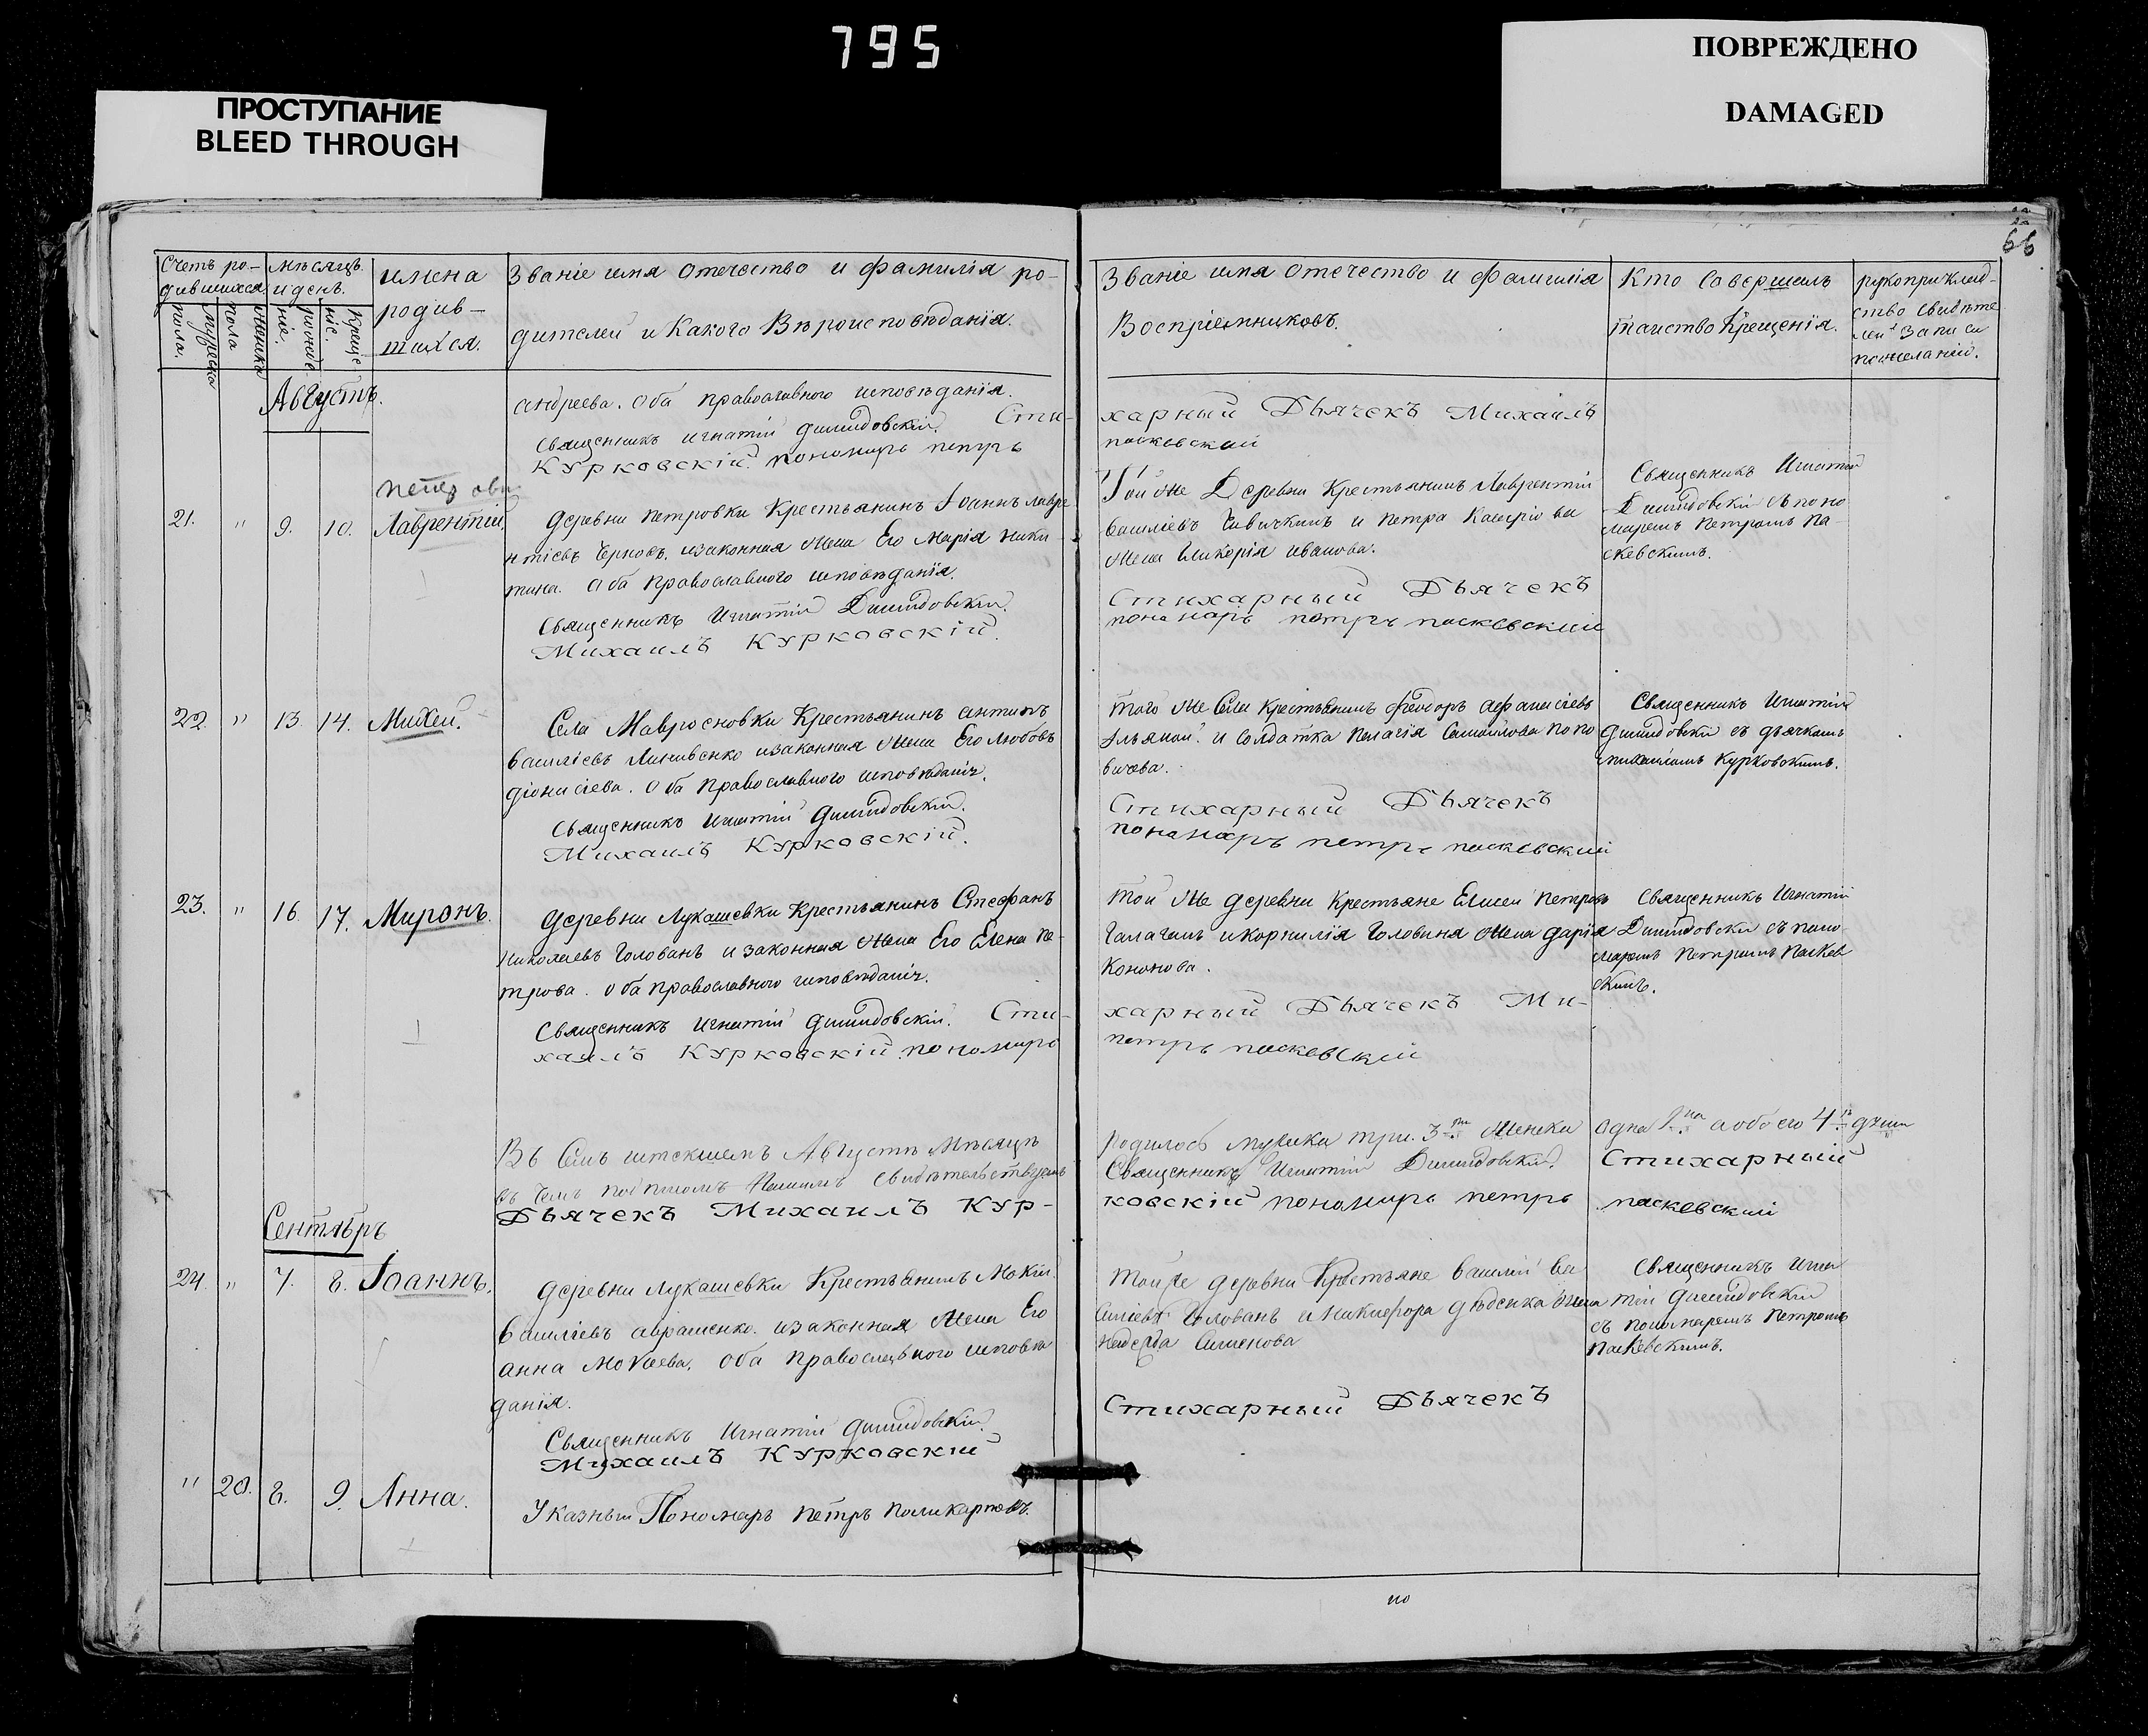 795
ПРОСТУПАНИЕ
BLEED THROUGH
ПОВРЕЖДЕНО
DAMAGED
66
Счетъ ро-
дившихся
Мужеска пола.
Женска пола
мѣсяцъ
и день.
рожденіе.
крещеніе.
имена
родив-
шихся.
Званіе имя отечество и фамилія ро-
дителей и какого Вѣроисповѣданія.
Званіе имя отечество и фамилія
Воспріемниковъ.
Кто Совершилъ
таинство Крещенія.
рукоприклад-
ство свидѣте
лей записи
по желанію.
Августъ.
андреева. Оба православного исповѣданія.
Священникъ Игнатій Сти-
Курковскій пономарь петръ
харный Дьячекъ Михаилъ
паскевский
21. " 9. 10. Лаврентій.
Деревни Петровки Крестьянинъ Іоаннъ лавре
нтіевъ Черновъ изаконная жена Его Марія ники
тина. Оба Православного исповѣданія.
Священникъ Игнатій
Михаилъ Курковскій.
Той же Деревни Крестьянинъ Лаврентій
василіевъ и Петра
жена Гликерія иванова.
Стихарный Дьячекъ
пономарь петръ паскевский
Священникъ Игнатій
съ поно
маремъ Петромъ Па-
скевскимъ.
22. " 13. 14. Михей.
Села Мавросновки Крестьянинъ антипъ
василіевъ изаконная жена Его Любовь
діонисіева. Оба Православного исповѣданія.
Священникъ Игнатій
Михаилъ Курковскій.
того же Села Крестьянинъ Феодоръ афанасіевъ
и Солдатка Пелагія Самойлова попо
вичова.
Стихарный Дьячекъ
пономаръ петръ паскевский
Священникъ Игнатій
съ дьячкомъ
михаиломъ Курковскимъ.
23. " 16. 17. Миронъ.
Деревни Лукашевки Крестьянинъ Стефанъ
Николаевъ Голованъ и законная жена Его Елена пе-
трова. Оба православного исповѣданія.
Священникъ Игнатій Сти-
хаилъ Курковскій. пономарь
той же деревни Крестьяне Елисей Петровъ
Галаганъ и Корнилія Голованя жена дарія
Кононова.
харный Дьячекъ Ми-
петръ паскевскій
Священникъ Игнатій
съ поно-
маремъ Петромъ Паскев
скимъ.
Въ Семъ истекшемъ Августѣ Мѣсяцѣ
въ чемъ подписомъ Нашимъ свидѣтельствуемъ
Дьячекъ Михаилъ Кур-
родилось мужска три. 3 женска
Священникъ Игнатій
ковскій пономарь петръ
одна 1 а обоего 4 души
Стихарный
паскевский
Сентябрь
24. " 7. 8. Іоаннъ.
Деревни Лукашевки Крестьянинъ Мокій
Василіевъ аврашенко изаконная жена Его
анна Мокиева. Оба православного исповѣ
данія.
Священникъ Игнатій
Михаилъ Курковскій
той же деревни Крестьяне василій ва
силіевъ Голованъ и никифора дѣденка жена
надежда Сименова
Стихарный Дьячекъ
Священникъ Игна
тій
съ пономаремъ Петромъ
Паскевскимъ.
" 20. 8. 9. Анна.
Указный Пономарь Петръ Поликарповъ.